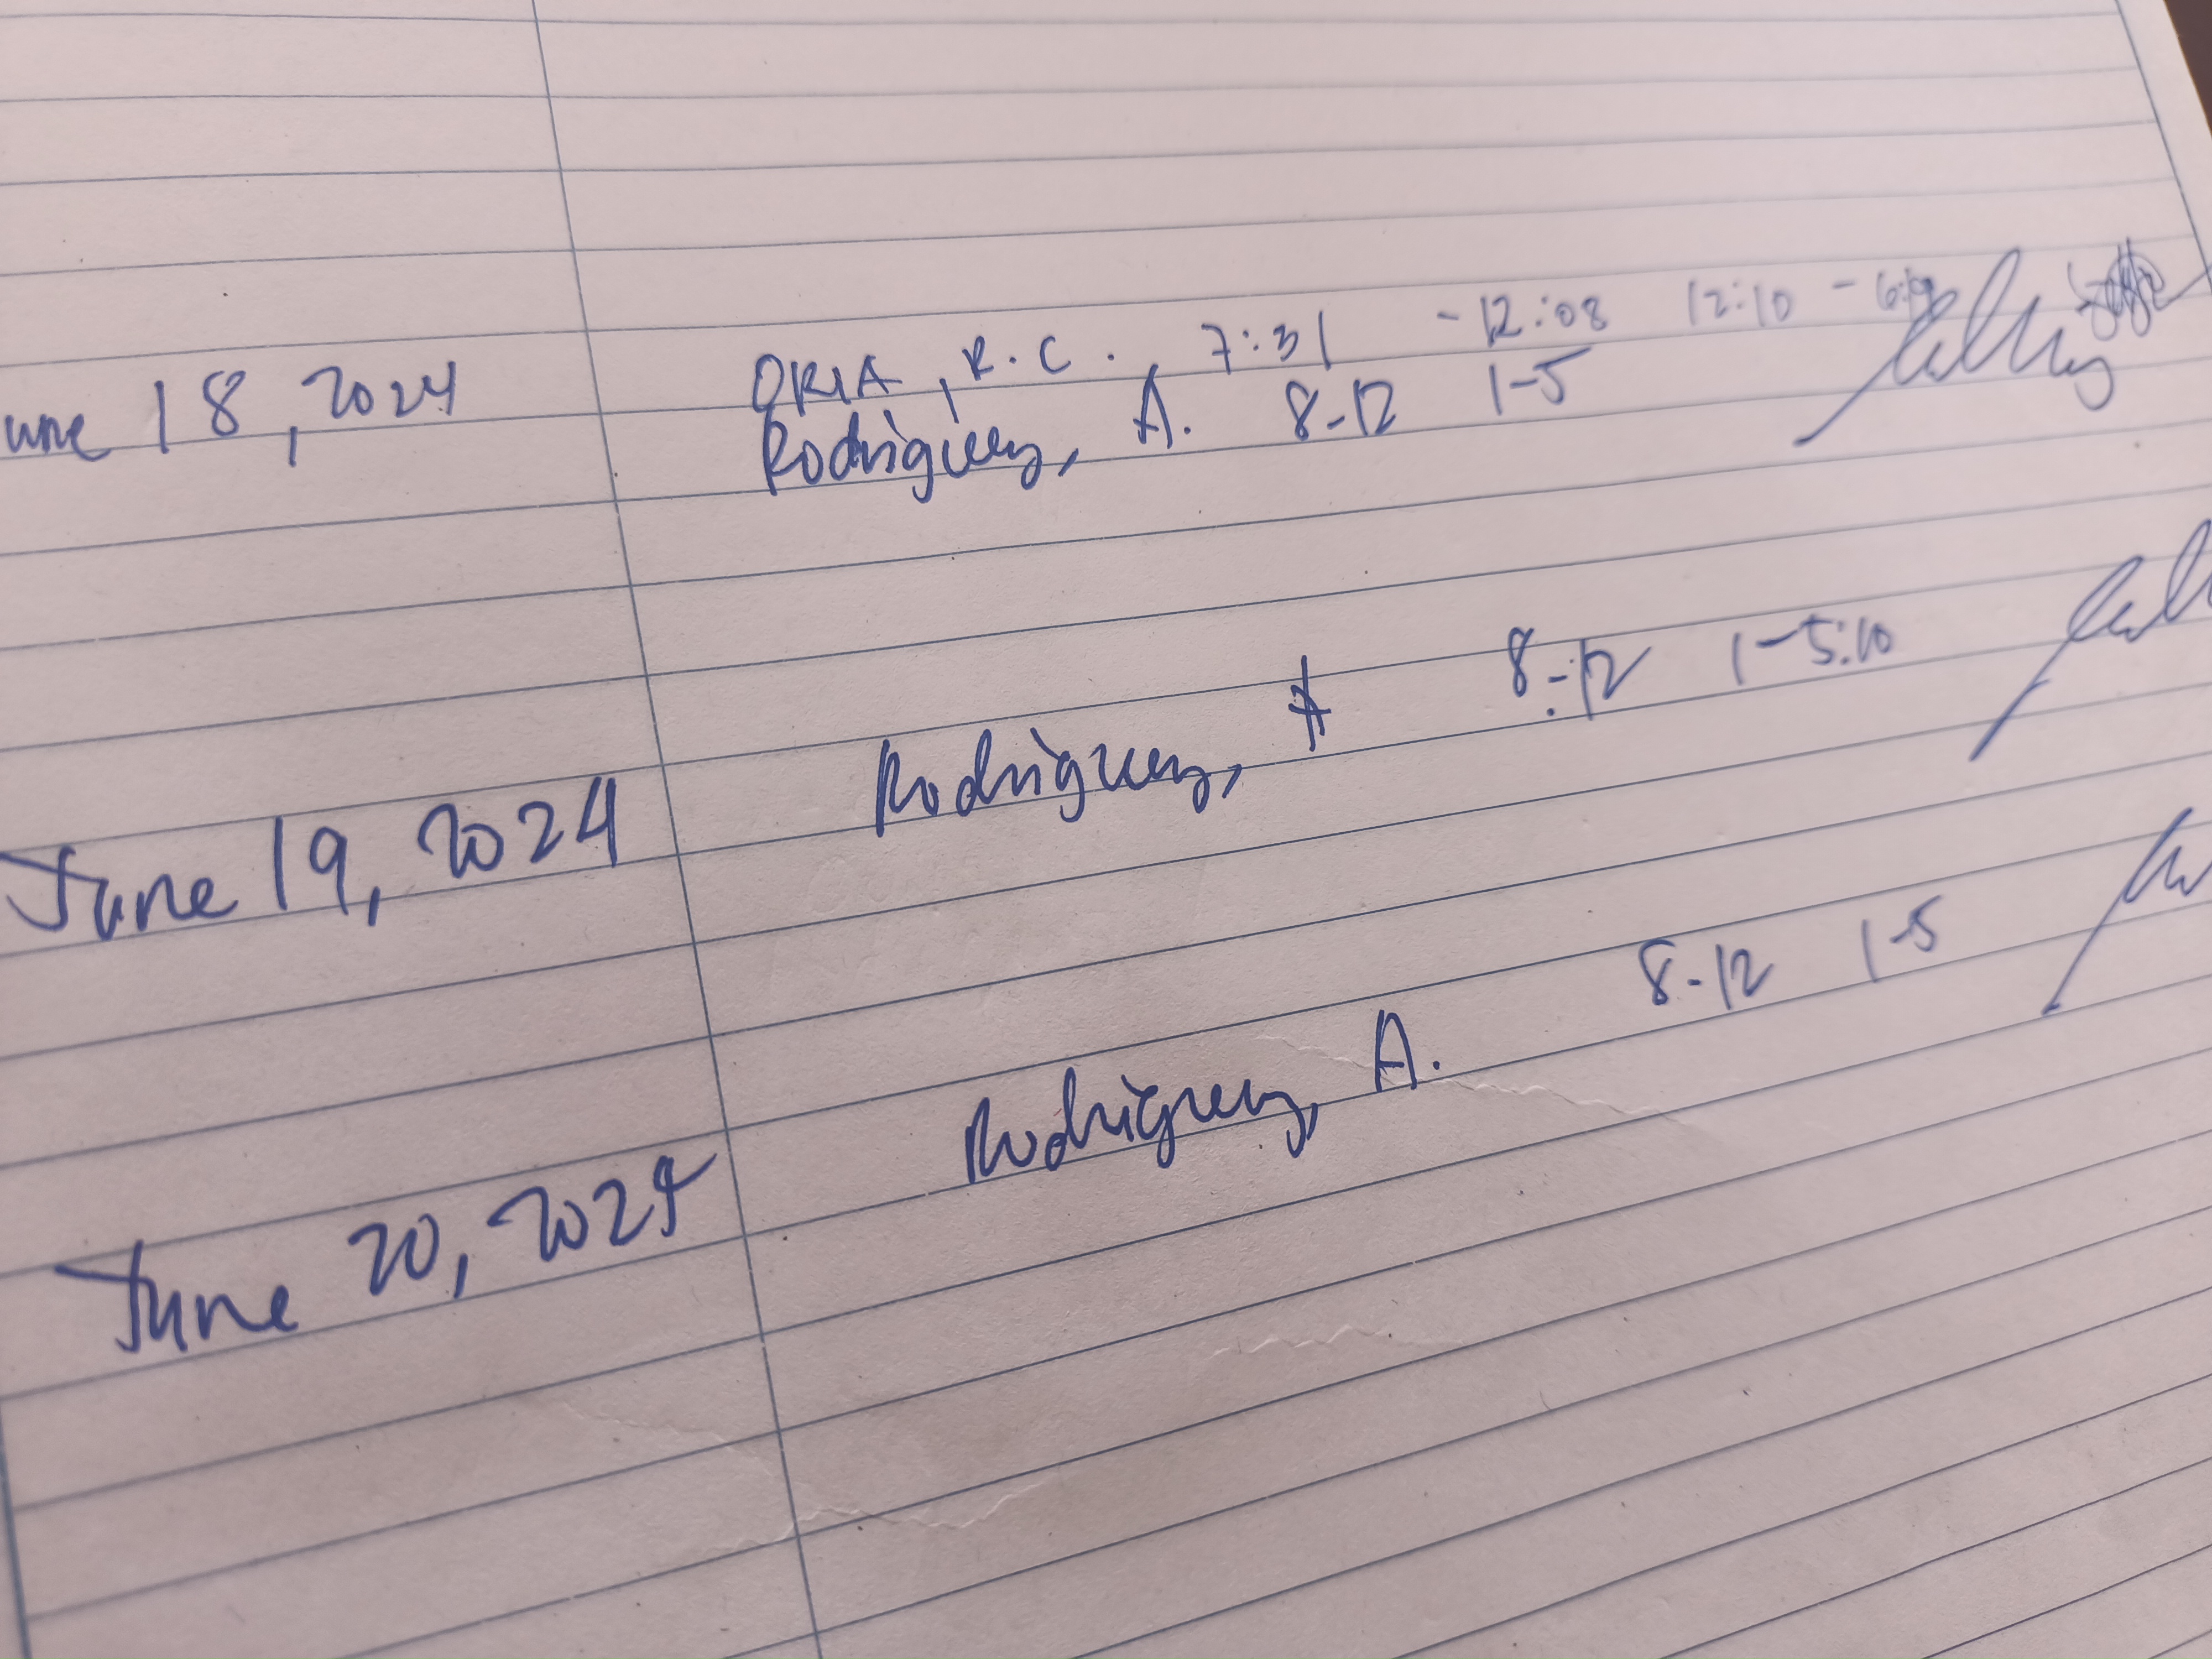 une 18, 2024 ORIA, R.C. 7:31 - 12:08 12:10 -
Rodriguez, A. 8-12 1-5
June 19, 2024 Rodriguez, A 8-12 1-5:10
June 20, 2024 Rodriguez, A. 8-12 1-5